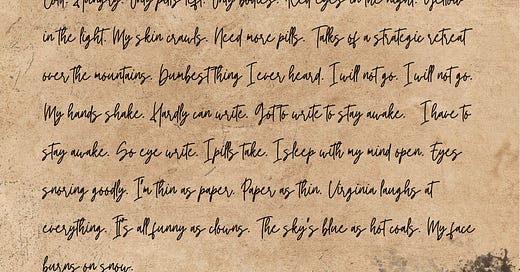 Cold. Hungry. Day pills left. Day bodies. Red eyes in the night. Yellow
in the light. My skin crawls. Need more pills. Talks of a strategic retreat
over the mountains. Dumbest thing I ever heard. I will not go. I will not go.
My hands shake. Hardly can write. Got to write to stay awake. I have to
stay awake. So eye write. I pills take. I sleep with my mind open. Eyes
snoring goodly. I'm thin as paper. Paper as thin. Virginia laughs at
everything. It's all funny as clowns. The sky's blue as hot coals. My face
burns on snow.